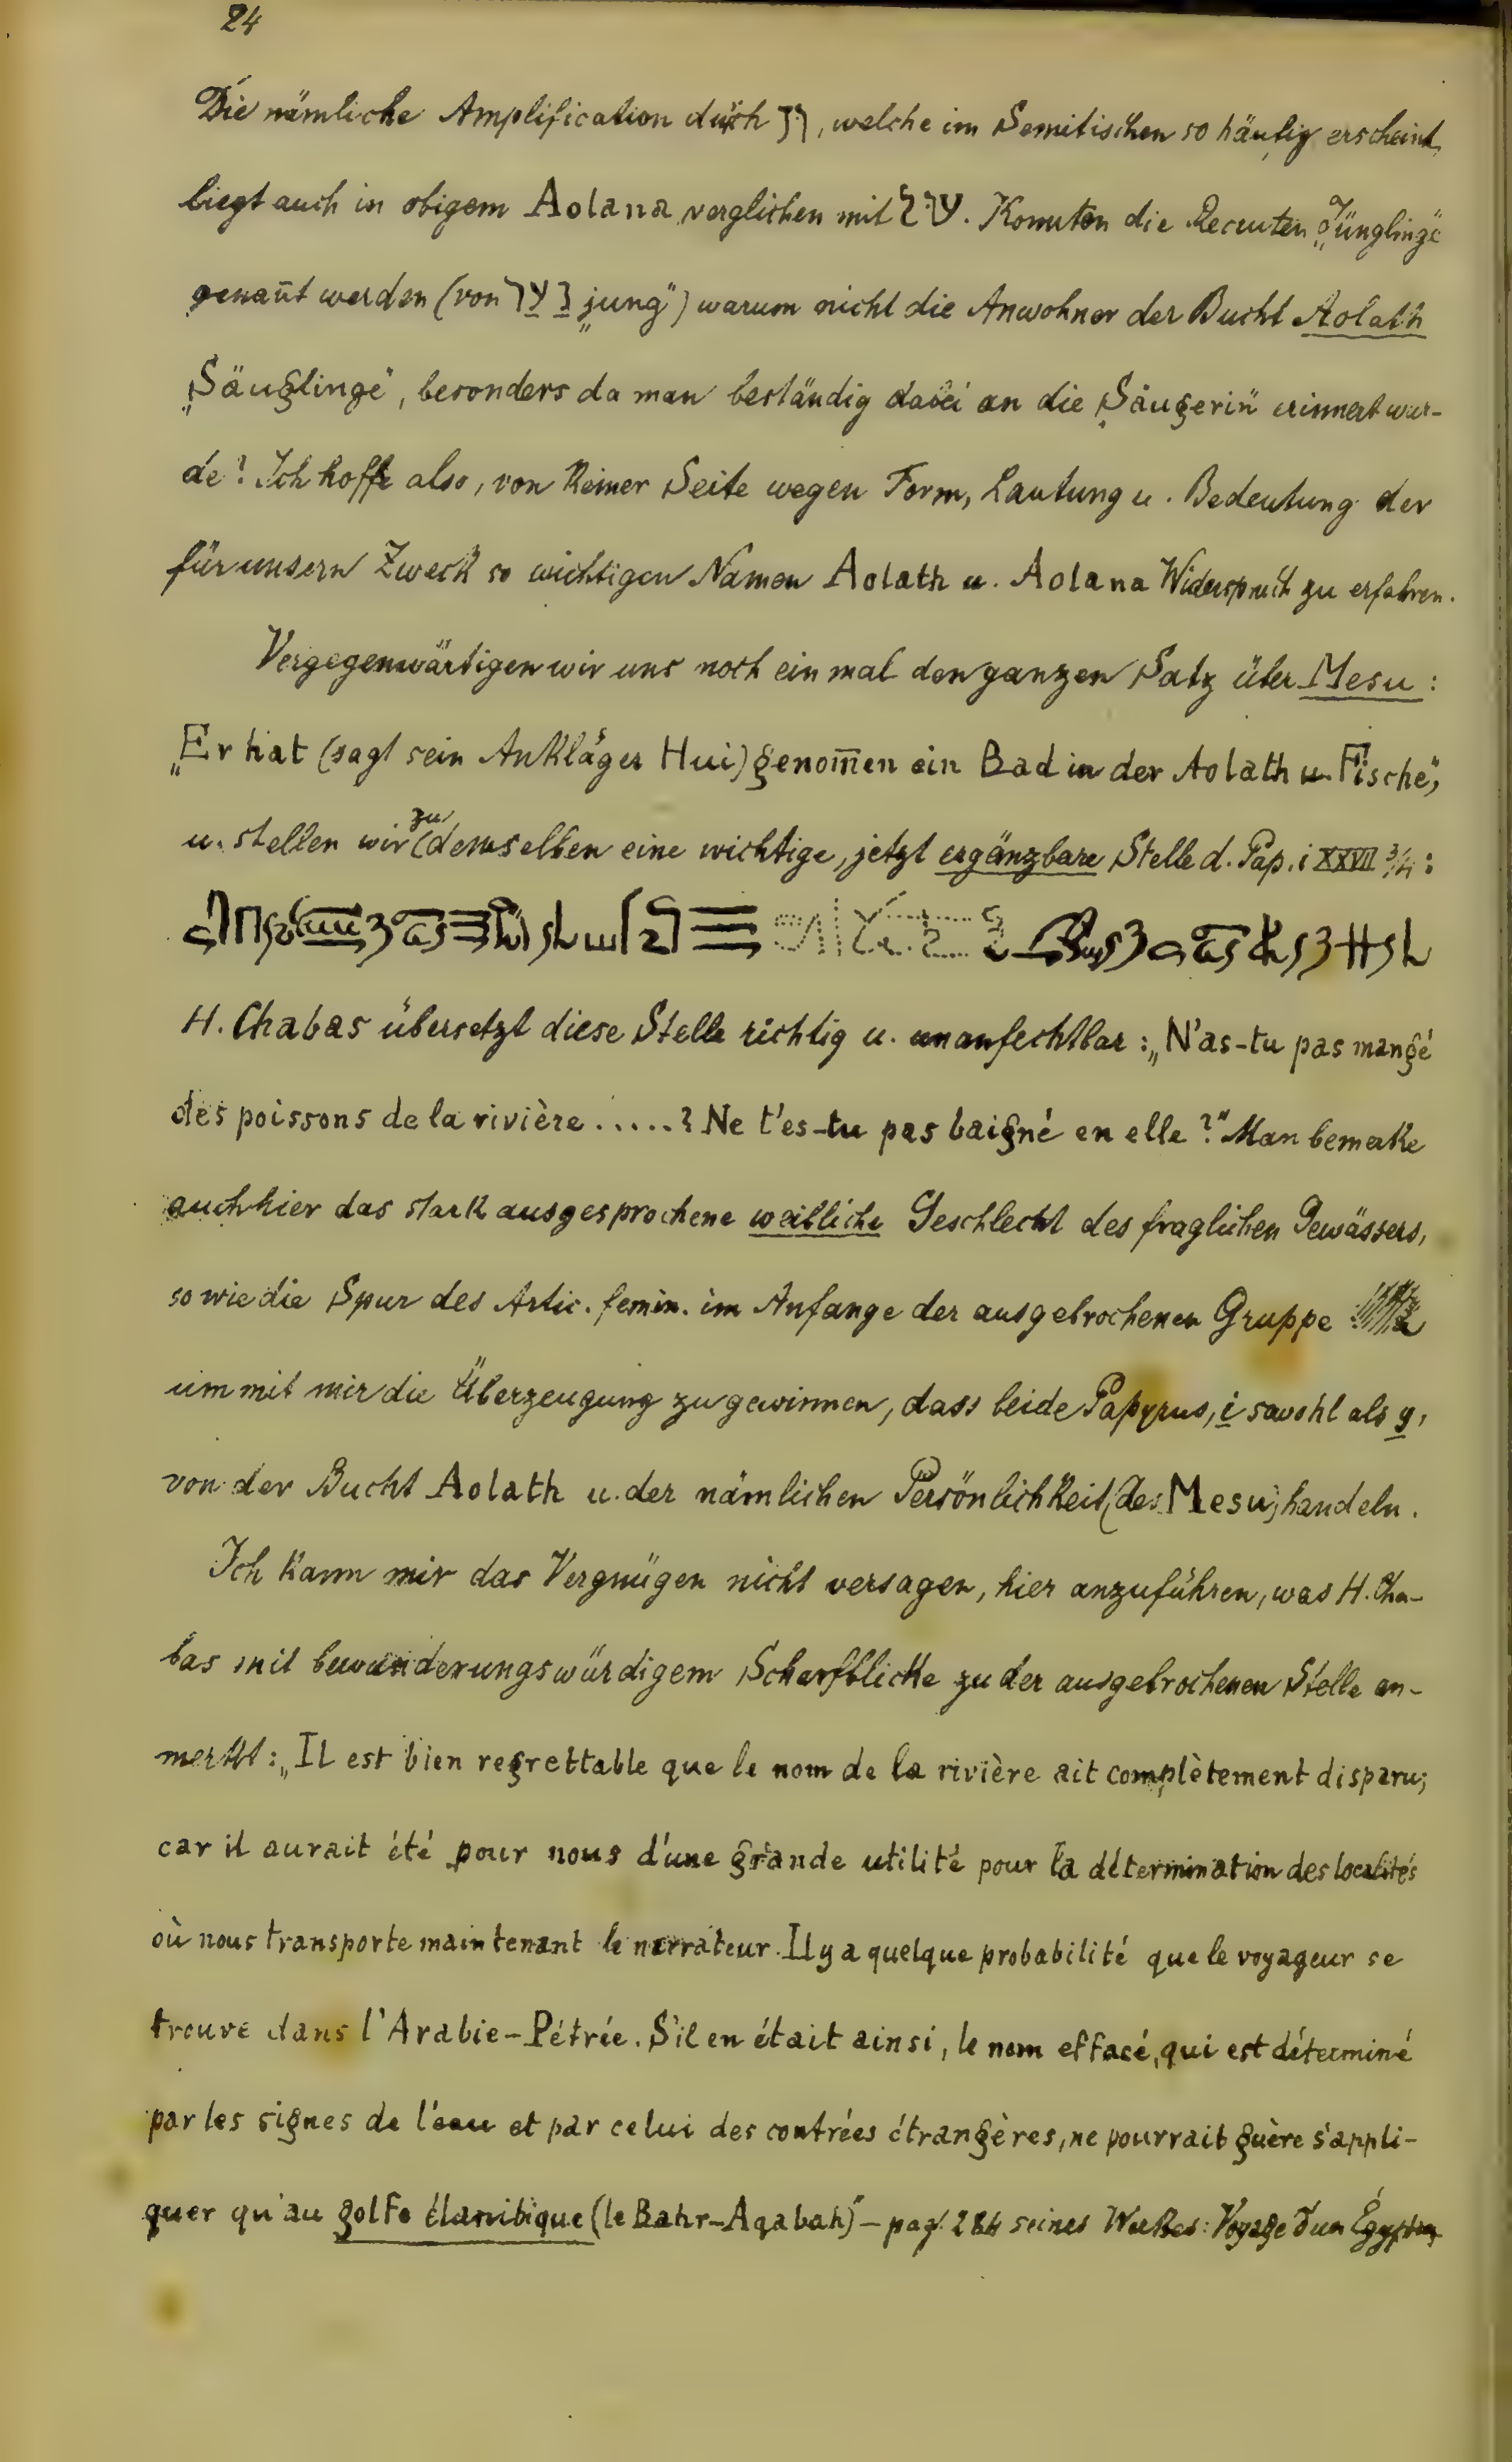 24
Die nämliche Amplification durch ון, welche im Semitischen so häufig erscheint,
liegt auch in obigem Aolana verglichen mit עול. Konnten die Recruten „Jünglinge"
genan̄t werden (von נער „jung") warum nicht die Anwohner der Bucht Aolath
„Säuglinge", besonders da man beständig dabei an die „Säugerin" erinnert wur-
de? Ich hoffe also, von keiner Seite wegen Form, Lautung u. Bedeutung der
für unsern Zweck so wichtigen Namen Aolath u. Aolana Widerspruch zu erfahren.
Vergegenwärtigen wir uns noch ein mal den ganzen Satz über Mesu:
„Er hat (sagt sein Ankläger Hui) genom̄en ein Bad in der Aolath u. Fische",
u. stellen wir zu demselben eine wichtige, jetzt ergänzbare Stelle d. Pap. i XXVII 3/4:
H. Chabas übersetzt diese Stelle richtig u. unanfechtbar: „N'as-tu pas mangé
des poissons de la rivière .....? Ne t'es-tu pas baigné en elle?" Man bemerke
auch hier das stark ausgesprochene weibliche Geschlecht des fraglichen Gewässers,
so wie die Spur des Artic. femin. im Anfange der ausgebrochenen Gruppe
um mit mir die Überzeugung zu gewinnen, dass beide Papyrus, i sowohl als y,
von der Bucht Aolath u. der nämlichen Persönlichkeit (des Mesu) handeln.
Ich kann mir das Vergnügen nicht versagen, hier anzuführen, was H. Cha-
bas mit bewunderungswürdigem Scharfblicke zu der ausgebrochenen Stelle an-
merkt: „Il est bien regrettable que le nom de la rivière ait complètement disparu;
car il aurait été pour nous d'une grande utilité pour la détermination des localités
où nous transporte maintenant le narrateur. Il y a quelque probabilité que le voyageur se
trouve dans l'Arabie-Pétrée. S'il en était ainsi, le nom effacé, qui est déterminé
par les signes de l'eau et par celui des contrées étrangères, ne pourrait guère s'appli-
quer qu'au golfe élanitique (le Bahr-Aqabah)" – pag. 284 seines Werkes: Voyage d'un Égyptien